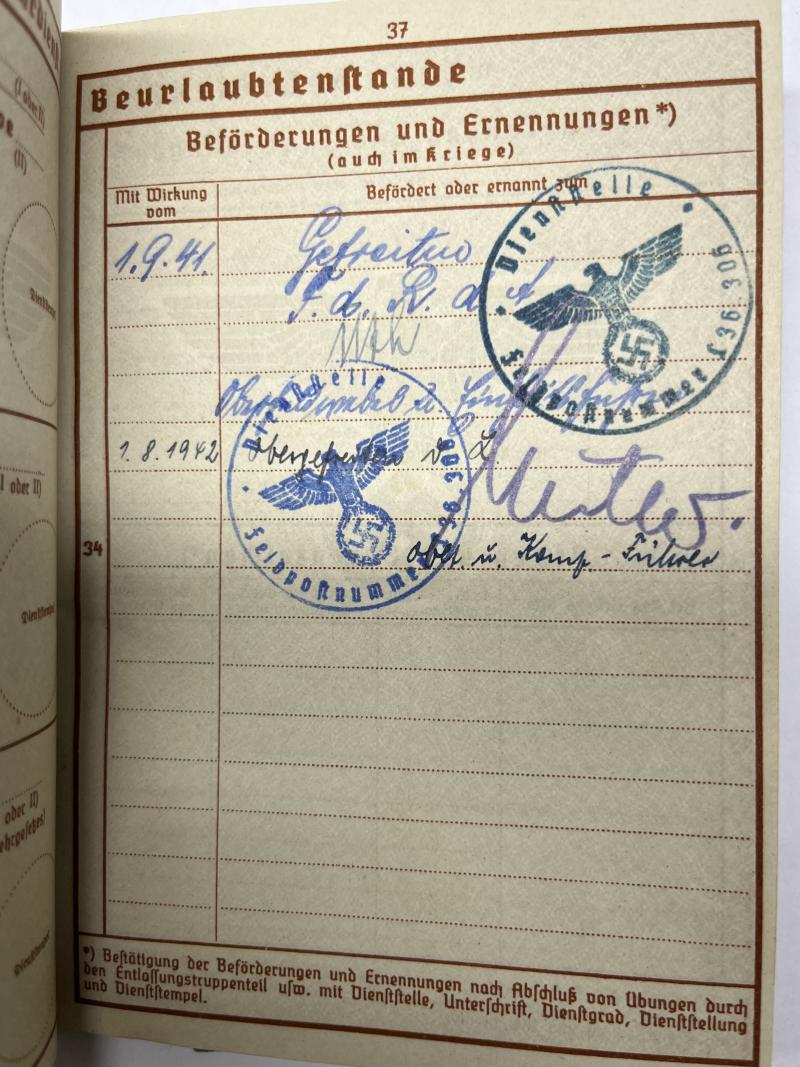 37
Beurlaubtenstande
Beförderungen und Ernennungen*)
(auch im Kriege)
Mit Wirkung vom
Befördert oder ernannt zum
1.9.41. Gefreiten
F. d. R. d. A
Dienststelle
Feldpostnummer 36 306
Oberfeldwebel u.
1.8.1942 Obergefreiten d. L
Dienststelle
Feldpostnummer 36 306
34
u. Komp.-Führer
*) Bestätigung der Beförderungen und Ernennungen nach Abschluß von Übungen durch
den Entlassungstruppenteil usw. mit Dienststelle, Unterschrift, Dienstgrad, Dienststellung
und Dienststempel.
(I oder II)
(II)
oder II)
Dienststempel
oder II)